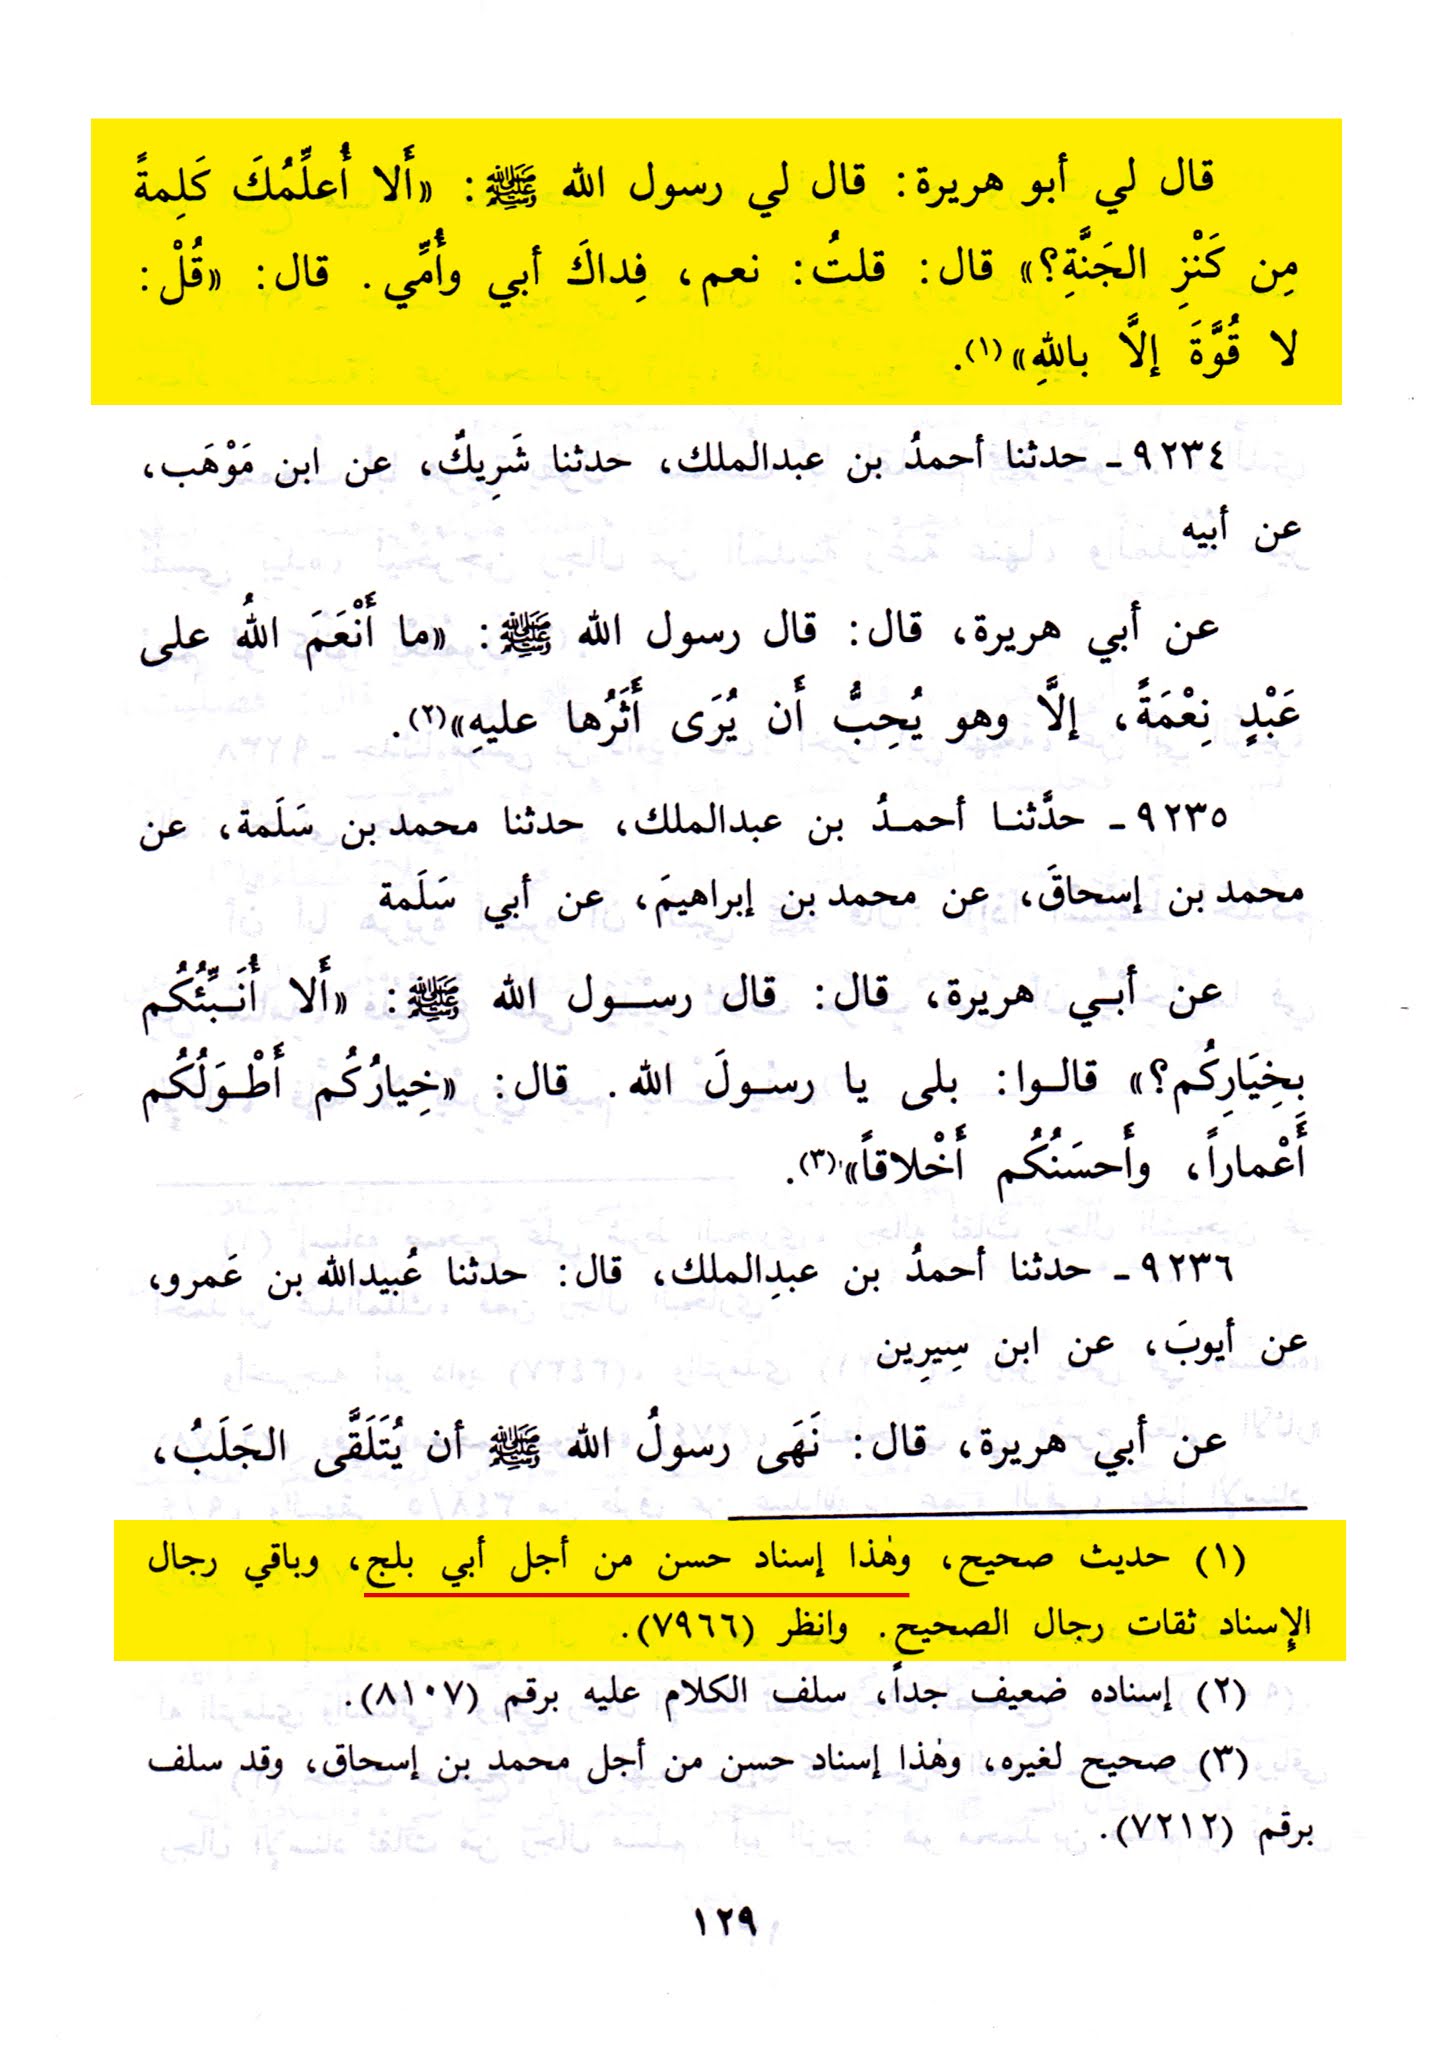 قال لي أبو هريرة: قال لي رسول الله ﷺ: «أَلا أُعلِّمُكَ كَلِمةً
مِن كَنْزِ الجَنَّةِ؟» قال: قلتُ: نعم، فِداكَ أبي وأُمِّي. قال: «قُلْ:
لا قُوَّةَ إلَّا باللهِ»(١).
٩٢٣٤ - حدثنا أحمدُ بن عبدالملك، حدثنا شَرِيكٌ، عن ابن مَوْهَب،
عن أبيه
عن أبي هريرة، قال: قال رسول الله ﷺ: «ما أَنْعَمَ اللهُ على
عَبْدٍ نِعْمَةً، إلَّا وهو يُحِبُّ أَن يُرَى أَثَرُها عليهِ»(٢).
٩٢٣٥ - حدَّثنا أحمدُ بن عبدالملك، حدثنا محمد بن سَلَمة، عن
محمد بن إسحاقَ، عن محمد بن إبراهيمَ، عن أبي سَلَمة
عن أبي هريرة، قال: قال رسول الله ﷺ: «أَلا أُنَبِّئُكُم
بِخِيَارِكُم؟» قالوا: بلى يا رسولَ الله. قال: «خِيارُكُم أَطْوَلُكُم
أَعْماراً، وأَحسَنُكُم أَخْلاقاً»(٣).
٩٢٣٦ - حدثنا أحمدُ بن عبدِالملك، قال: حدثنا عُبيدالله بن عَمرو،
عن أيوبَ، عن ابن سِيرِين
عن أبي هريرة، قال: نَهَى رسولُ الله ﷺ أن يُتَلَقَّى الجَلَبُ،
(١) حديث صحيح، وهٰذا إسناد حسن من أجل أبي بلج، وباقي رجال
الإِسناد ثقات رجال الصحيح. وانظر (٧٩٦٦).
(٢) إسناده ضعيف جداً، سلف الكلام عليه برقم (٨١٠٧).
(٣) صحيح لغيره، وهٰذا إسناد حسن من أجل محمد بن إسحاق، وقد سلف
برقم (٧٢١٢).
١٢٩